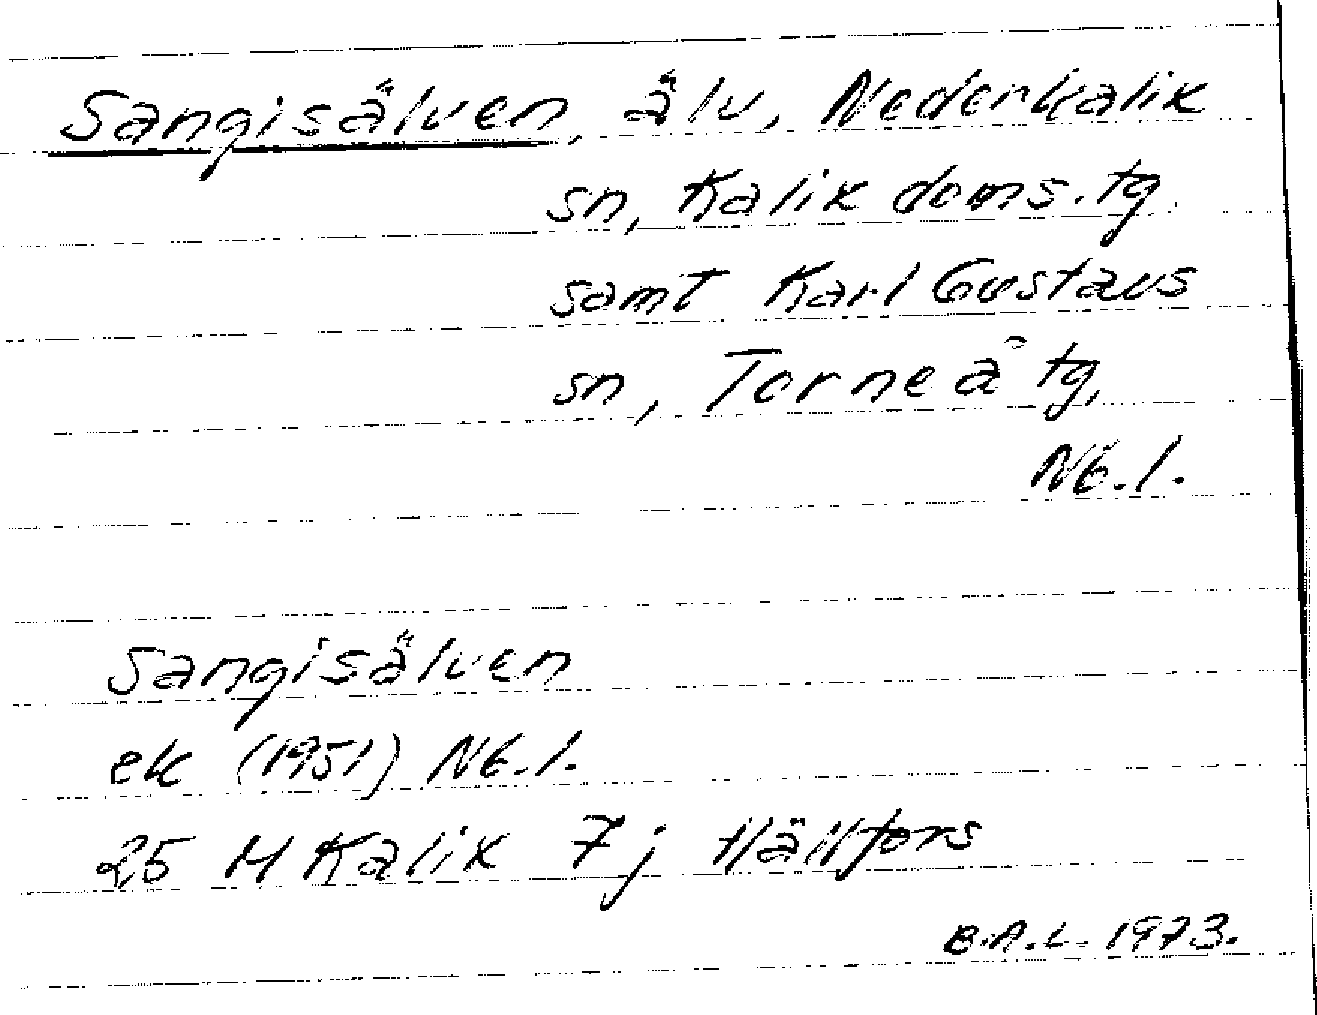 Sangisälven, älv, Nederkalix
sn, Kalix doms. tg
samt Karl Gustavs
sn, Torneå tg,
Nb. l.
Sangisälven
ek (1951) Nb. l.
25 M Kalix 7j Hällfors
B.A.L. 1973.